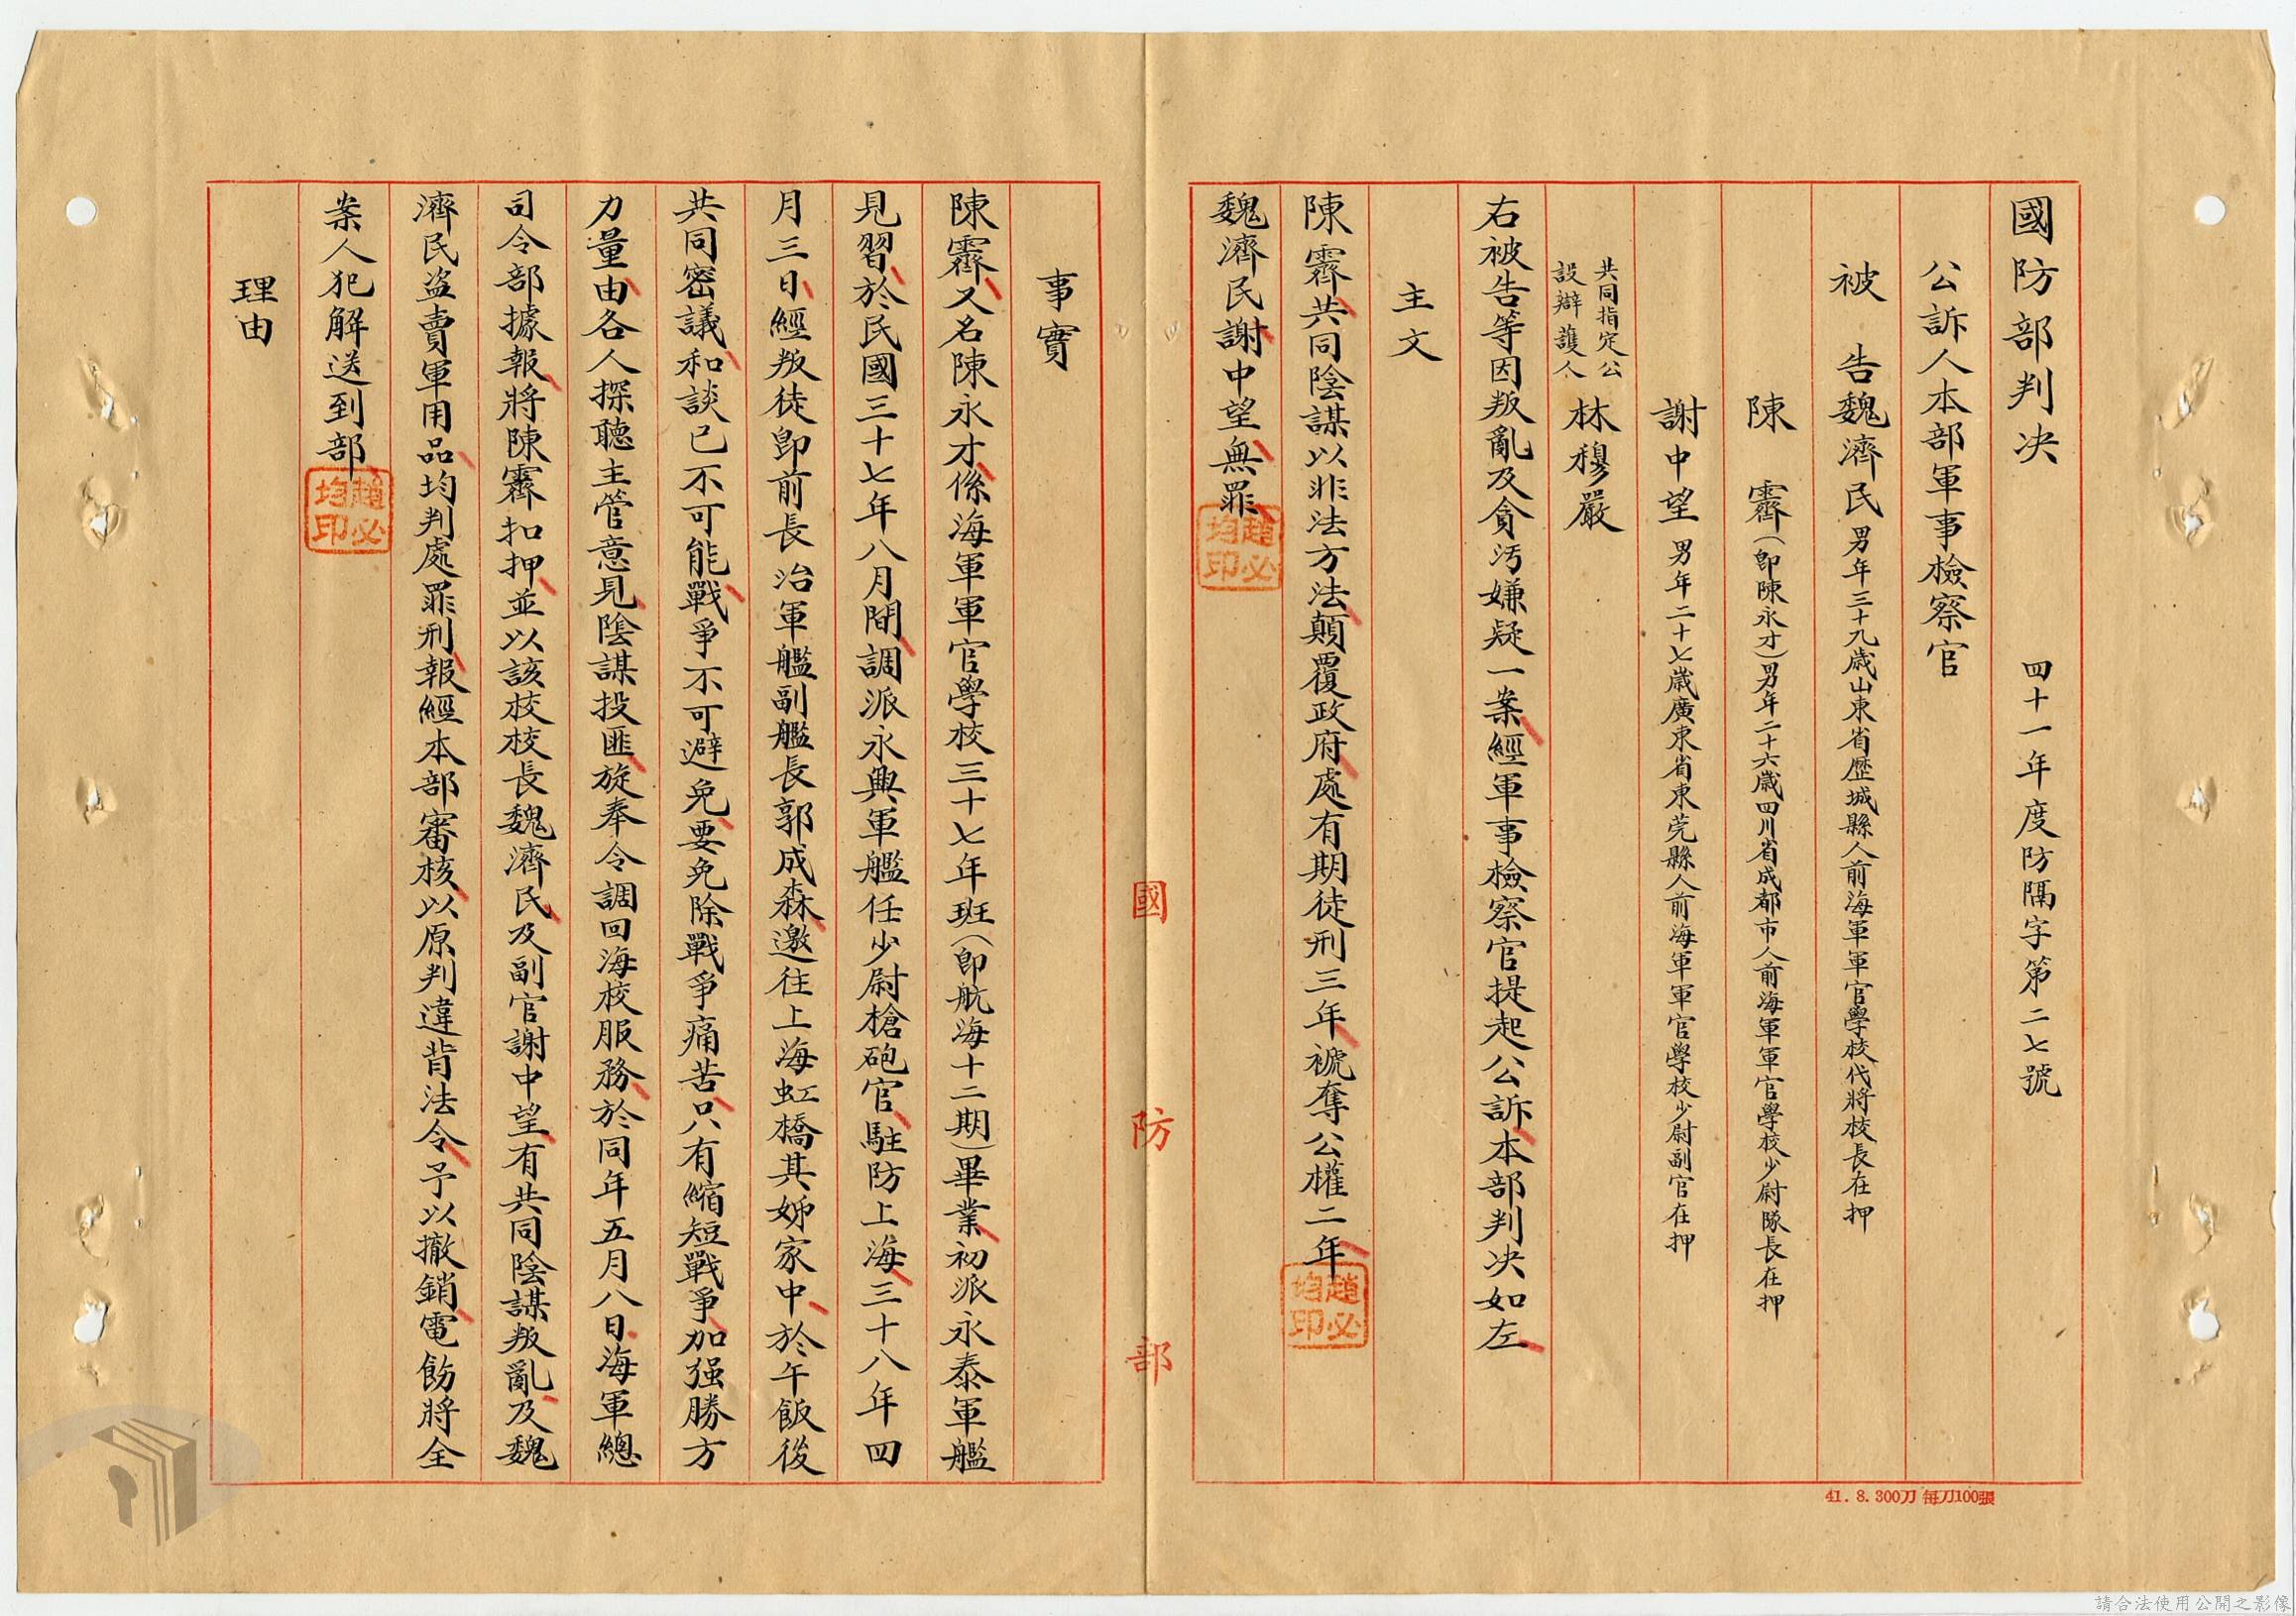 國防部判决　四十一年度防隔字第二七號
公訴人本部軍事檢察官
被告魏濟民男年三十九歲山東省歷城縣人前海軍軍官學校代將校長在押
陳霽（卽陳永才）男年二十六歲四川省成都市人前海軍軍官學校少尉隊長在押
謝中望男年二十七歲廣東省東莞縣人前海軍軍官學校少尉副官在押
共同指定公設辯護人林穆嚴
右被告等因叛亂及貪污嫌疑一案經軍事檢察官提起公訴本部判决如左
主文
陳霽共同陰謀以非法方法顛覆政府處有期徒刑三年褫奪公權二年
趙必均印
魏濟民謝中望無罪
趙必均印
41.8.300刀每刀100張
國防部
事實
陳霽又名陳永才係海軍軍官學校三十七年班（卽航海十二期）畢業初派永泰軍艦
見習於民國三十七年八月間調派永興軍艦任少尉槍砲官駐防上海三十八年四
月三日經叛徒卽前長治軍艦副艦長郭成森邀往上海虹橋其姊家中於午飯後
共同密議和談已不可能戰爭不可避免要免除戰爭痛苦只有縮短戰爭加强勝方
力量由各人探聽主管意見陰謀投匪旋奉令調回海校服務於同年五月八日海軍總
司令部據報將陳霽扣押並以該校校長魏濟民及副官謝中望有共同陰謀叛亂及魏
濟民盗賣軍用品均判處罪刑報經本部審核以原判違背法令予以撤銷電飭將全
案人犯解送到部
趙必均印
理由
請合法使用公開之影像